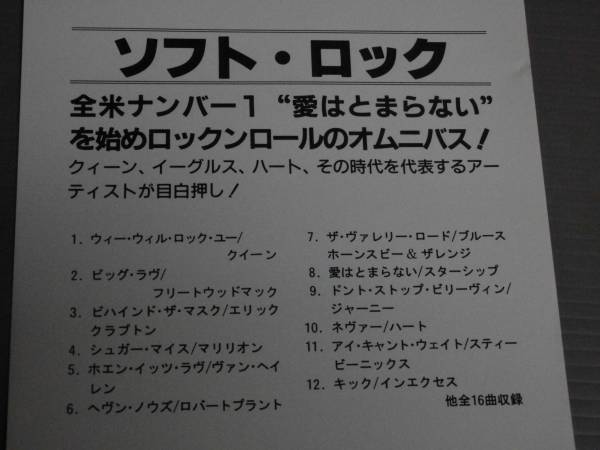 ソフト・ロック
全米ナンバー1 “愛はとまらない”
を始めロックンロールのオムニバス!
クィーン、イーグルス、ハート、その時代を代表するアー
ティストが目白押し!
1. ウィー・ウィル・ロック・ユー/
クイーン
2. ビッグ・ラヴ/
フリートウッドマック
3. ビハインド・ザ・マスク/エリック
クラプトン
4. シュガー・マイス/マリリオン
5. ホエン・イッツ・ラヴ/ヴァン・ヘイ
レン
6. ヘヴン・ノウズ/ロバートプラント
7. ザ・ヴァレリー・ロード/ブルース
ホーンスビー&ザレンジ
8. 愛はとまらない/スターシップ
9. ドント・ストップ・ビリーヴィン/
ジャーニー
10. ネヴァー/ハート
11. アイ・キャント・ウェイト/スティー
ビーニックス
12. キック/インエクセス
他全16曲収録